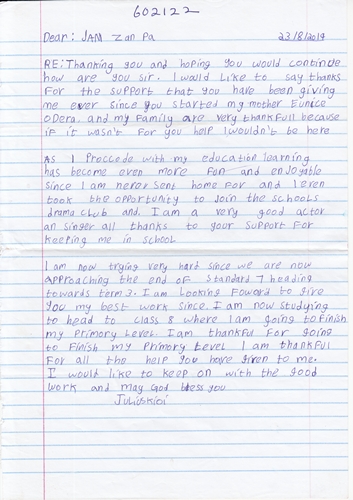 602122
Dear: JAN Zan Pa 23/8/2019
RE: Thanking you and hoping you would continue
how are you sir. I would like to say thanks
For the support that you have been giving
me ever since you started my mother Eunice
Odera. and my Family are very thankfull because
if it wasn't For you help I wouldn't be here
As I Proccede with my education learning
has become even more fun and enjoyable
since I am never sent home For and I even
took the opportunity to join the schools
drama club and. I am a very good actor
an singer all thanks to your support For
Keeping me in school
I am now trying very hard since we are now
approaching the end of standard 7 heading
towards term 3. I am looking Foward to give
you my best work since. I am now studying
to head to class 8 where I am going to Finish
my Primary Level. I am thankful For going
to Finish my Primary Level I am thankful
For all the help you have given to me.
I would like to keep on with the good
work and may God bless you